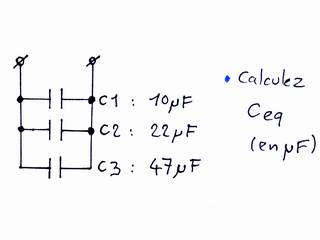 C1 : 10µF
C2 : 22µF
C3 : 47µF
• Calculez
Ceq
(en µF)